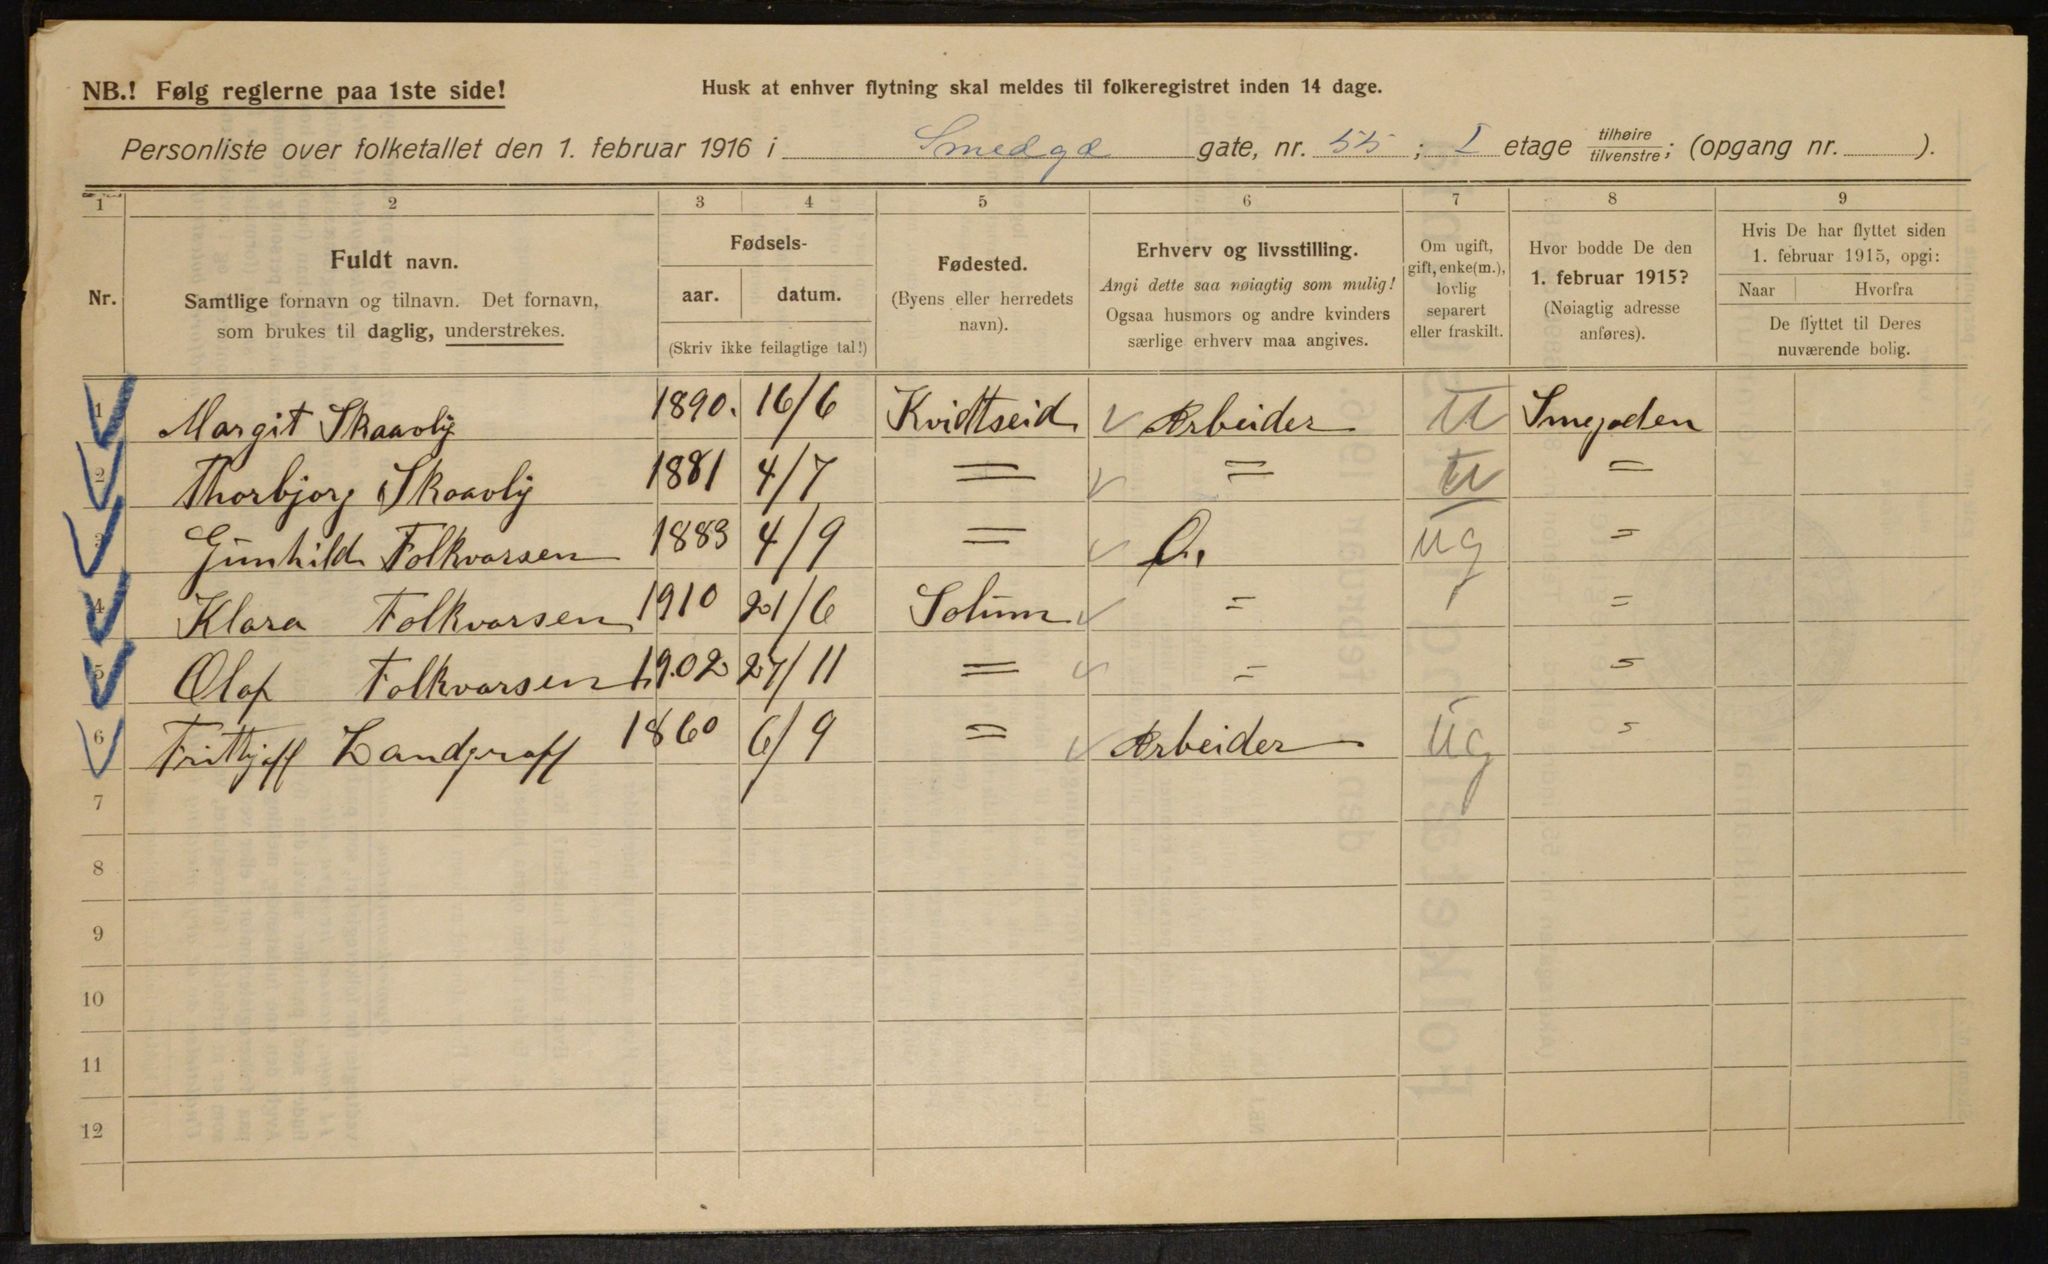 NB.! Følg reglerne paa 1ste side!
Husk at enhver flytning skal meldes til folkeregistret inden 14 dage.
Personliste over folketallet den 1. februar 1916 i Smedgd gate, nr. 55; I etage tilhøire tilvenstre; (opgang nr. ).
1 2 3 4 5 6 7 8 9
Nr.
Fuldt navn.
Samtlige fornavn og tilnavn. Det fornavn,
som brukes til daglig, understrekes.
Fødsels-
aar. datum.
(Skriv ikke feilagtige tal!)
Fødested.
(Byens eller herredets
navn).
Erhverv og livsstilling.
Angi dette saa nøiagtig som mulig!
Ogsaa husmors og andre kvinders
særlige erhverv maa angives.
Om ugift,
gift, enke(m.),
lovlig
separert
eller fraskilt.
Hvor bodde De den
1. februar 1915?
(Nøiagtig adresse
anføres).
Hvis De har flyttet siden
1. februar 1915, opgi:
Naar Hvorfra
De flyttet til Deres
nuværende bolig.
1 Margit Skaavlij 1890. 16/6 Kvidtseid Arbeider U Smejaden
2 Thorbjorg Skaavlij 1881 4/7 = = U =
3 Gunhild Folkvarsen 1883 4/9 = O. ug =
4 Klara Folkvarsen 1910 21/6 Solum = =
5 Olaf Folkvarsen 1902 27/11 = = =
6 Frithjoff Landgraff 1860 6/9 = Arbeider ug =
7
8
9
10
11
12